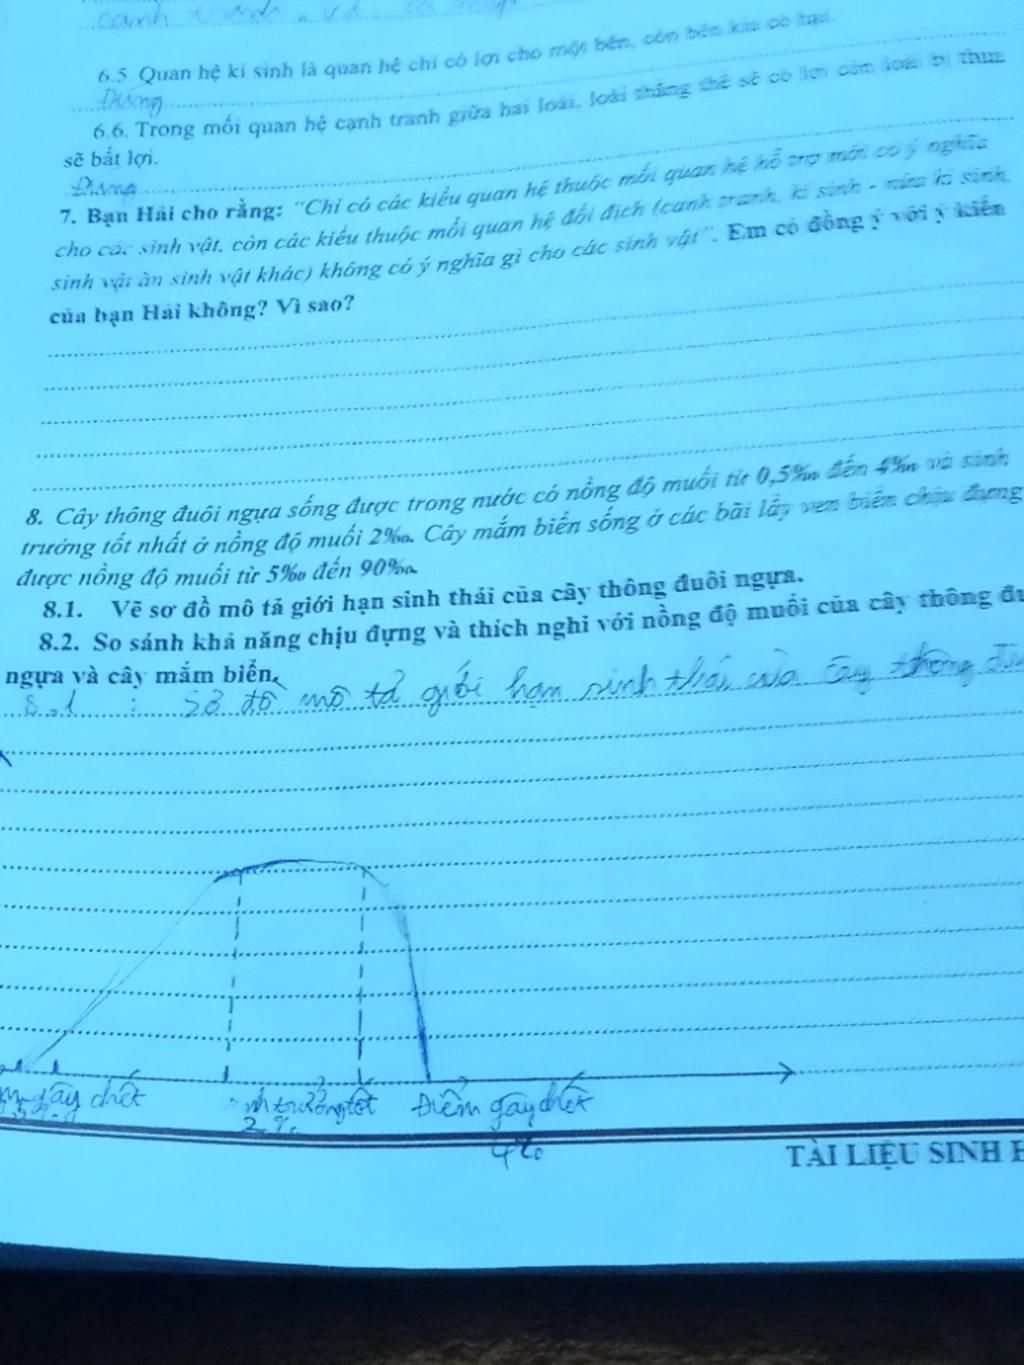 canh tranh
6.5. Quan hệ kí sinh là quan hệ chỉ có lợi cho một bên, còn bên kia có hại.
Đúng
6.6. Trong mối quan hệ cạnh tranh giữa hai loài, loài thắng thế sẽ có lợi còn loài bị thua
sẽ bất lợi.
Đúng
7. Bạn Hải cho rằng: "Chỉ có các kiểu quan hệ thuộc mối quan hệ hỗ trợ mới có ý nghĩa
cho các sinh vật, còn các kiểu thuộc mối quan hệ đối địch (cạnh tranh, kí sinh - nửa kí sinh,
sinh vật ăn sinh vật khác) không có ý nghĩa gì cho các sinh vật". Em có đồng ý với ý kiến
của bạn Hải không? Vì sao?
8. Cây thông đuôi ngựa sống được trong nước có nồng độ muối từ 0,5‰ đến 4‰ và sinh
trưởng tốt nhất ở nồng độ muối 2‰. Cây mắm biển sống ở các bãi lầy ven biển chịu đựng
được nồng độ muối từ 5‰ đến 90‰.
8.1. Vẽ sơ đồ mô tả giới hạn sinh thái của cây thông đuôi ngựa.
8.2. So sánh khả năng chịu đựng và thích nghi với nồng độ muối của cây thông đu
ngựa và cây mắm biển.
8.1 : Sơ đồ mô tả giới hạn sinh thái của cây thông
gây chết trưởng tốt Điểm gây chết
4‰
TÀI LIỆU SINH